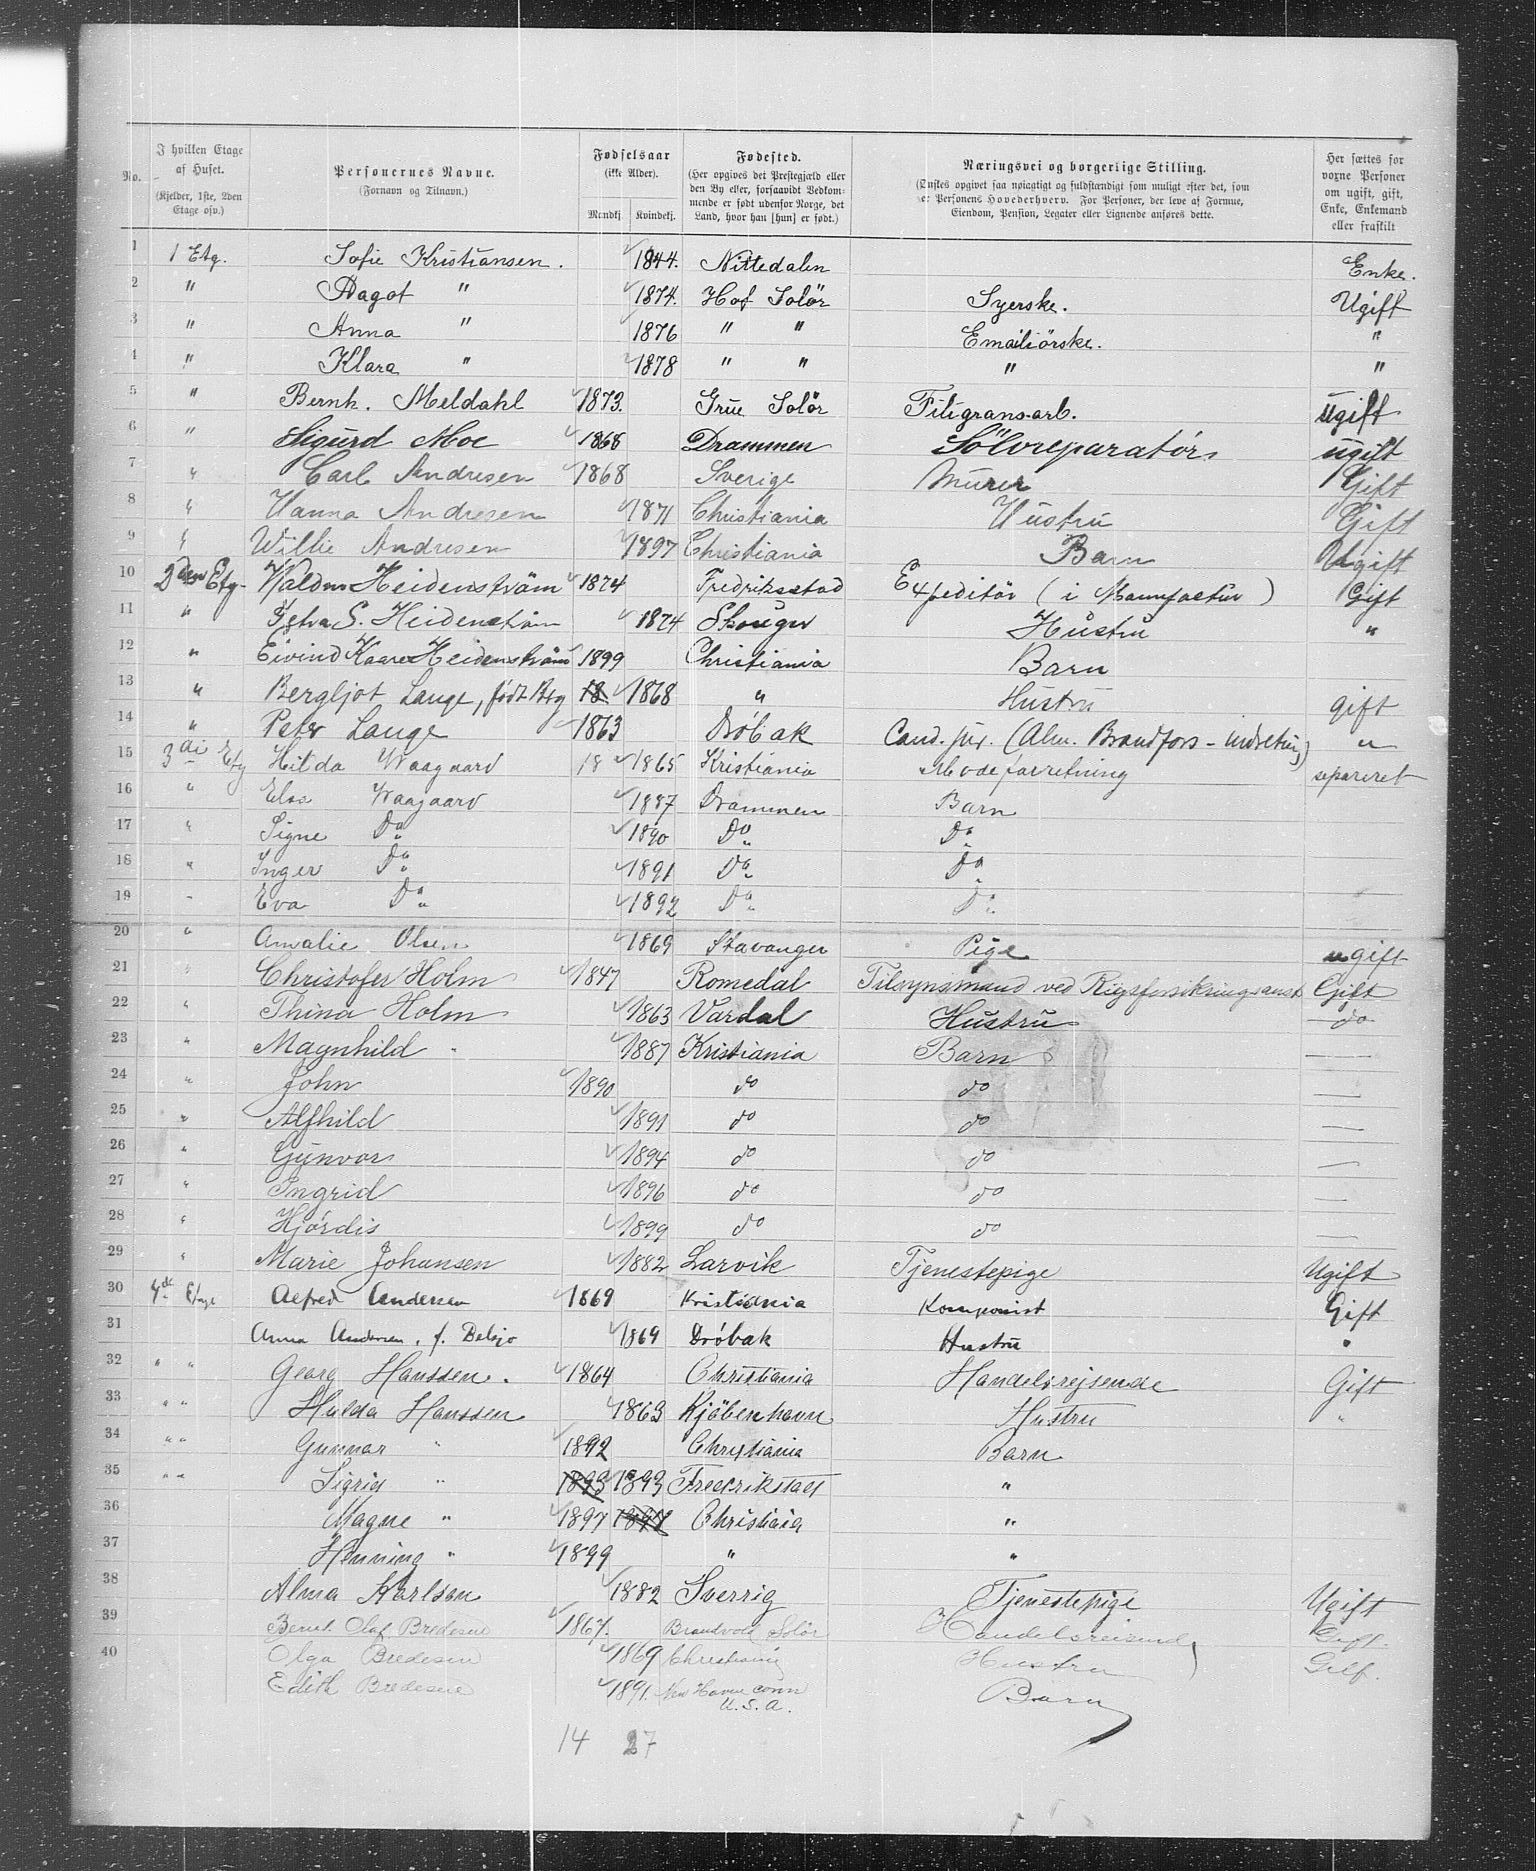 No.
I hvilken Etage af Huset. (Kjelder, 1ste, 2den Etage osv.)
Personernes Navne. (Fornavn og Tilnavn.)
Fødselsaar (ikke Alder). Mandkj. Kvindekj.
Fødested. (Her opgives det Prestegjæld eller den By eller, forsaavidt Vedkommende er født udenfor Norge, det Land, hvor han [hun] er født.)
Næringsvei og borgerlige Stilling. (Ønskes opgivet saa nøiagtigt og fuldstændigt som muligt efter det, som er Personens Hovederhverv. For Personer, der leve af Formue, Eiendom, Pension, Legater eller Lignende anføres dette.
Her sættes for voxne Personer om ugift, gift, Enke, Enkemand eller fraskilt
1 1 Etg. Sofie Kristiansen. 1844. Nittedalen Enke.
2 " Dagot " 1874. Hof Solör Syerske. Ugift
3 " Anna " 1876 " " Emailiörske. "
4 " Klara " 1878 " " " "
5 " Bernh. Meldahl 1873. Grue Solör Filigransarb. ugift
6 " Sigurd Moe 1868 Drammen Sölvreparatör ugift
7 " Carl Andresen 1868 Sverige Murer Gift
8 " Hanna Andresen 1871 Christiania Hustru Gift
9 " Willie Andresen 1897 Christiania Barn Ugift
10 2den Etg. Waldm Heidenström 1874 Fredriksstad Expeditör (i Manufactur) Gift
11 " S. Heidenström 1874 Skouger Hustru "
12 " Eivind Kaare Heidenström 1899 Christiania Barn
13 " Bergljot Lange, født Btg 18 1868 " Hustru gift
14 " Peter Lange 1863 Dröbak Cand. jur. (Alm. Brandfors-indretning) "
15 3di Etg Hilda Waagaard 18 1865 Kristiania Modeforretning separeret
16 " Elsa Waagaard 1887 Drammen Barn
17 " Signe Do 1890 Do Do
18 " Inger Do 1891 Do Do
19 - Eva Do 1892 Do Do
20 " Amalie Olsen 1869 Stavanger Pige ugift
21 " Christofer Holm 1847 Romedal Tilsynsmand ved Rigsforsikringsanst Gift
22 " Thina Holm 1863 Vardal Hustru do
23 " Magnhild " 1887 Kristiania Barn
24 " John 1890 do do
25 " Alfhild 1891 do do
26 " Gunvor 1894 do do
27 " Ingrid 1896 do do
28 " Hjördis 1899 do do
29 " Marie Johansen 1882 Larvik Tjenestepige Ugift
30 4de Etage Alfred Andersen 1869 Kristiania Komponist Gift
31 Anna Andersen, f. Belsjo 1869 Dröbak Hustru "
32 " " Georg Hanssen. 1864 Christiania Handelsrejsende Gift
33 " " Hulda Hanssen 1863 Kjöbenhavn Hustru "
34 " " Gunnar " 1892 Christiania Barn
35 " " Sigrid " 1893 1893 Fredrikstad "
36 Magne " 1897 1897 Christiania "
37 Henning " 1899 " "
38 Alma Karlsen 1882 Sverrig Tjenestepige Ugift
39 Bernt. Olaf Bredesen 1867. Brandvold Solör Handelsreisende Gift.
40 Olga Bredesen 1869 Christiania Hustru Gift.
Edith Bredesen 1891. New Haven conn U.S.A. Barn
14 27